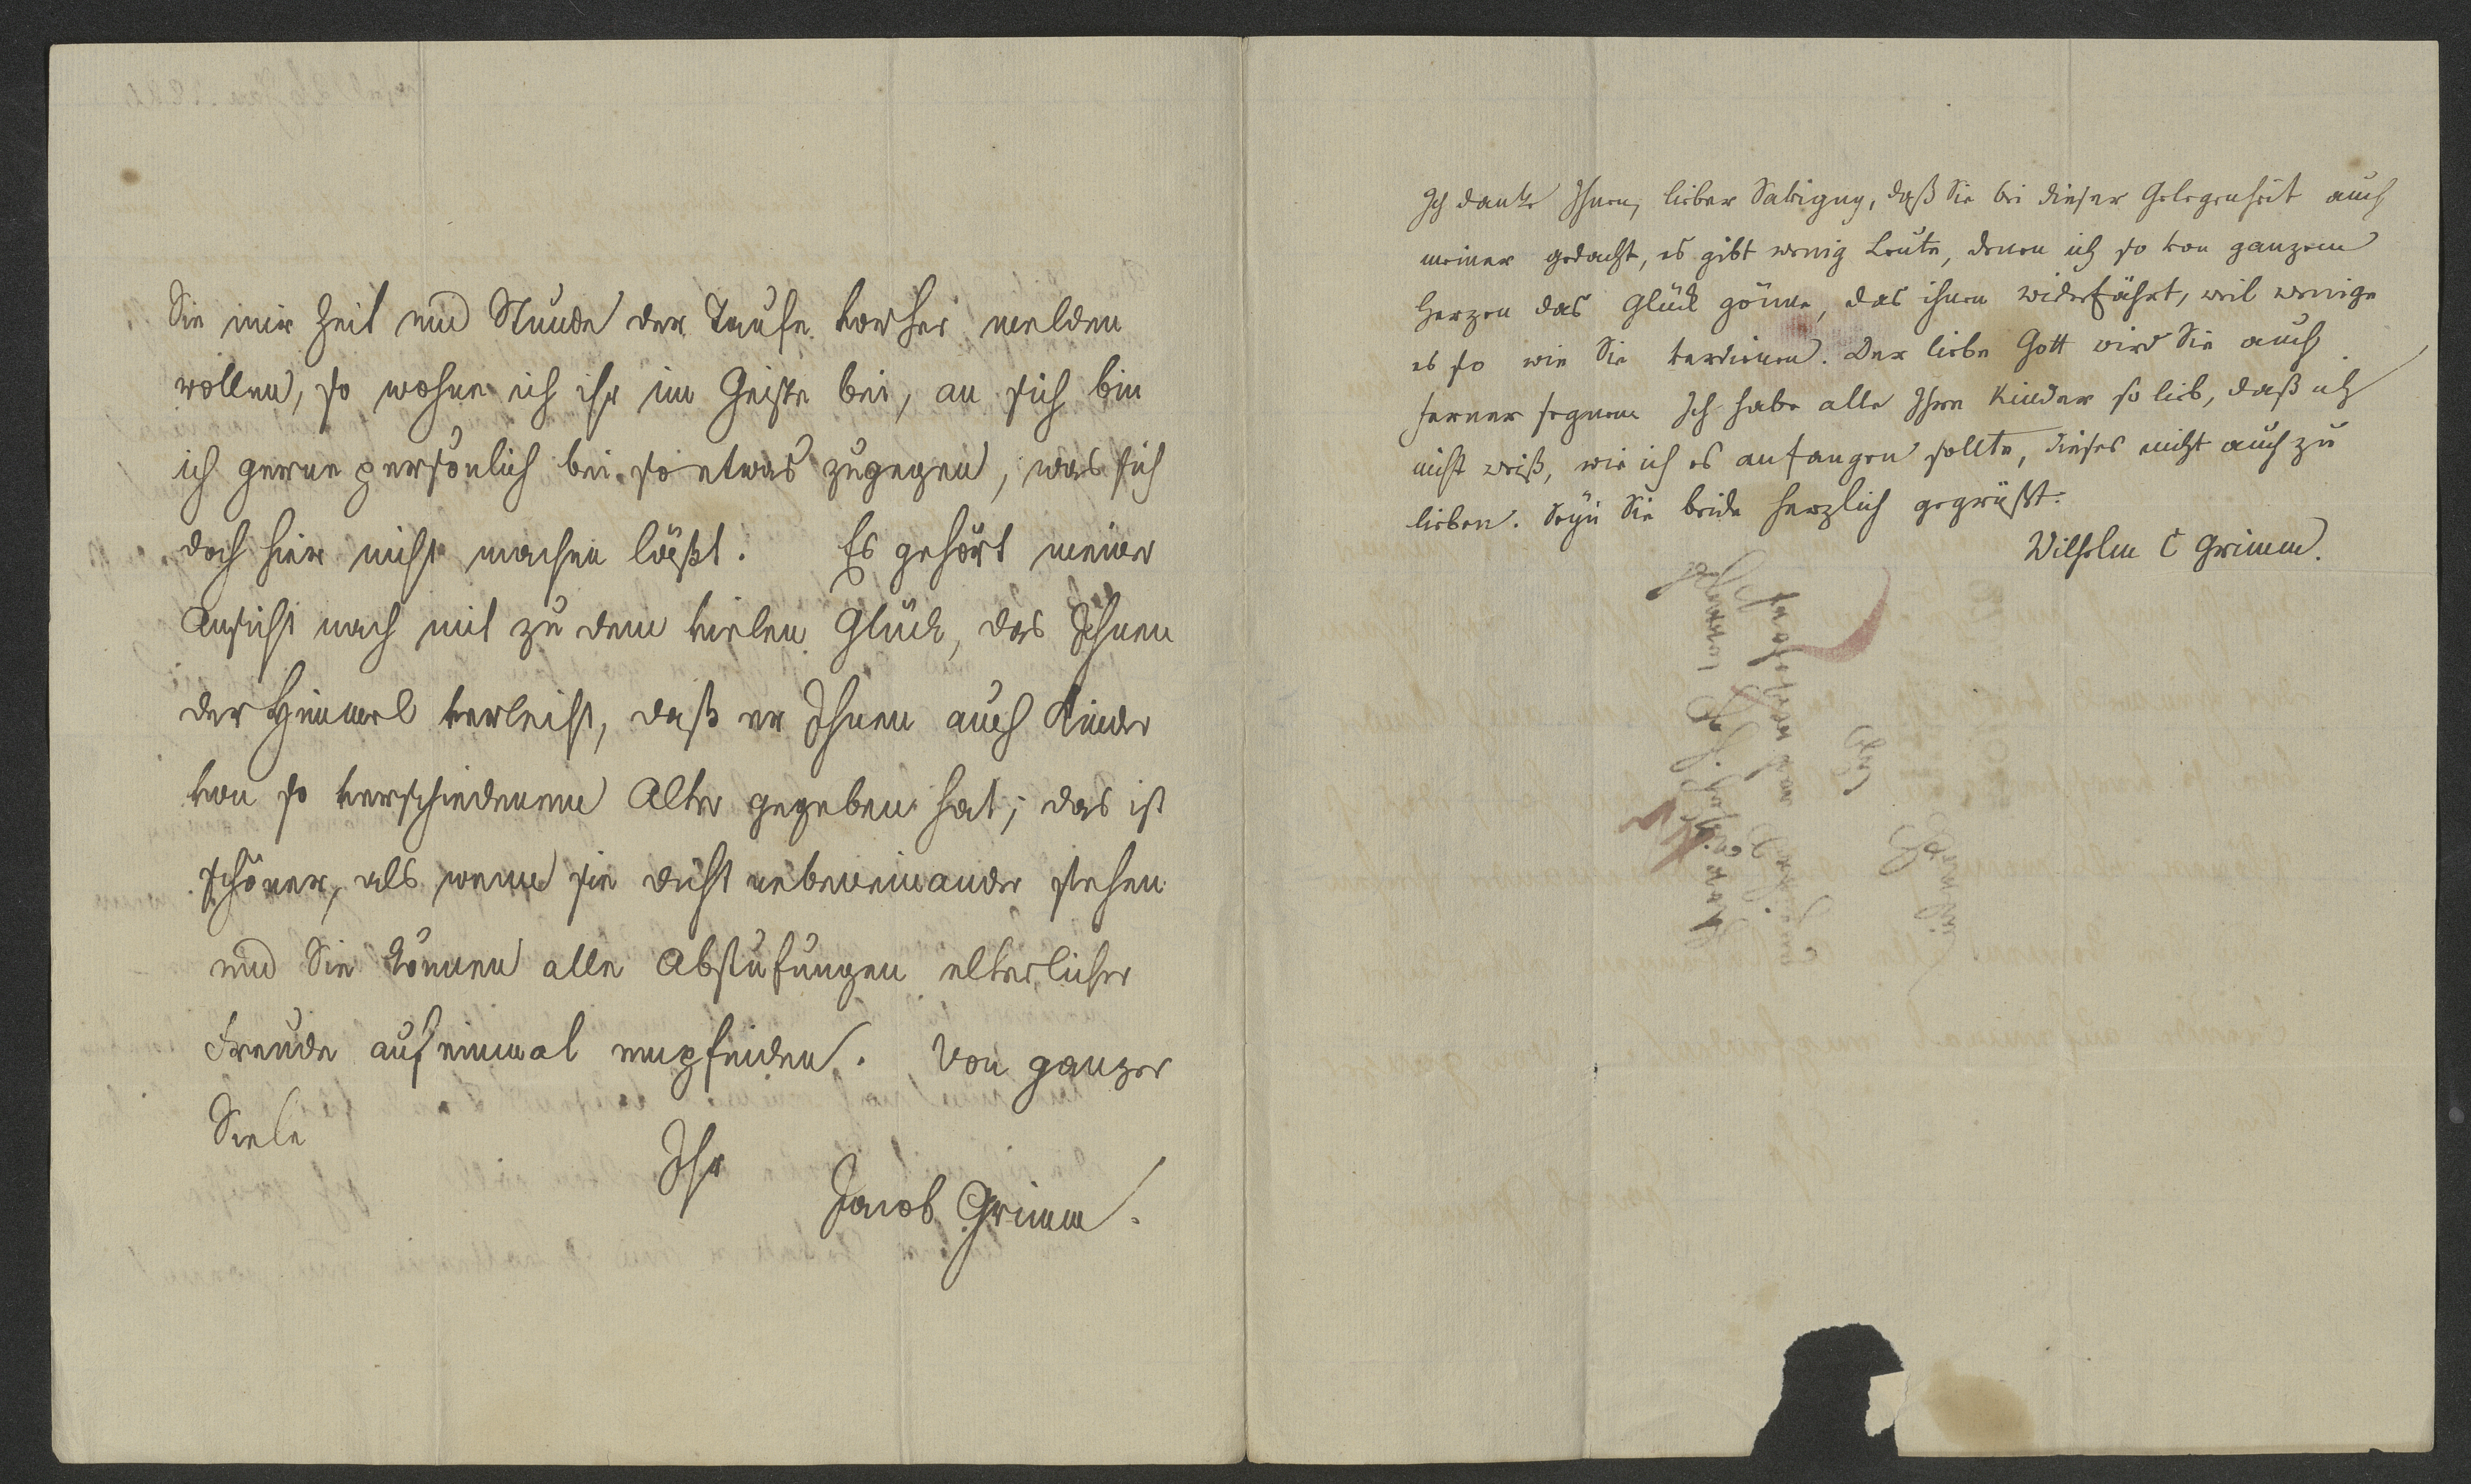 Sie mir Zeit und Stunde der Taufe vorher melden
wollen, so wohne ich ihr im Geiste bei, an sich bin
ich gerne persönlich bei so etwas zugegen, was sich
doch hier nicht machen läßt. Es gehört meiner
Ansicht nach mit zu dem vielen Glück, das Ihnen
der Himmel verleiht, daß er Ihnen auch Kinder
von so verschiedenem Alter gegeben hat; das ist
schöner, als wenn sie dicht nebeneinander stehen
und Sie können alle Abstufungen elterlicher
Freude auf einmal empfinden. Von ganzer
Seele
Ihr
Jacob Grimm.
Ich danke Ihnen, lieber Savigny, daß Sie bei dieser Gelegenheit auch
meiner gedacht, es gibt wenig Leute, denen ich so von ganzem
Herzen das Glück gönne, das ihnen widerfährt, weil wenige
es so wie Sie verdienen. Der liebe Gott wird Sie auch
ferner segnen. Ich habe alle Ihre Kinder so lieb, daß ich
nicht weiß, wie ich es anfangen sollte, dieses nicht auch zu
lieben. Seyn Sie beide herzlich gegrüßt.
Wilhelm C Grimm.